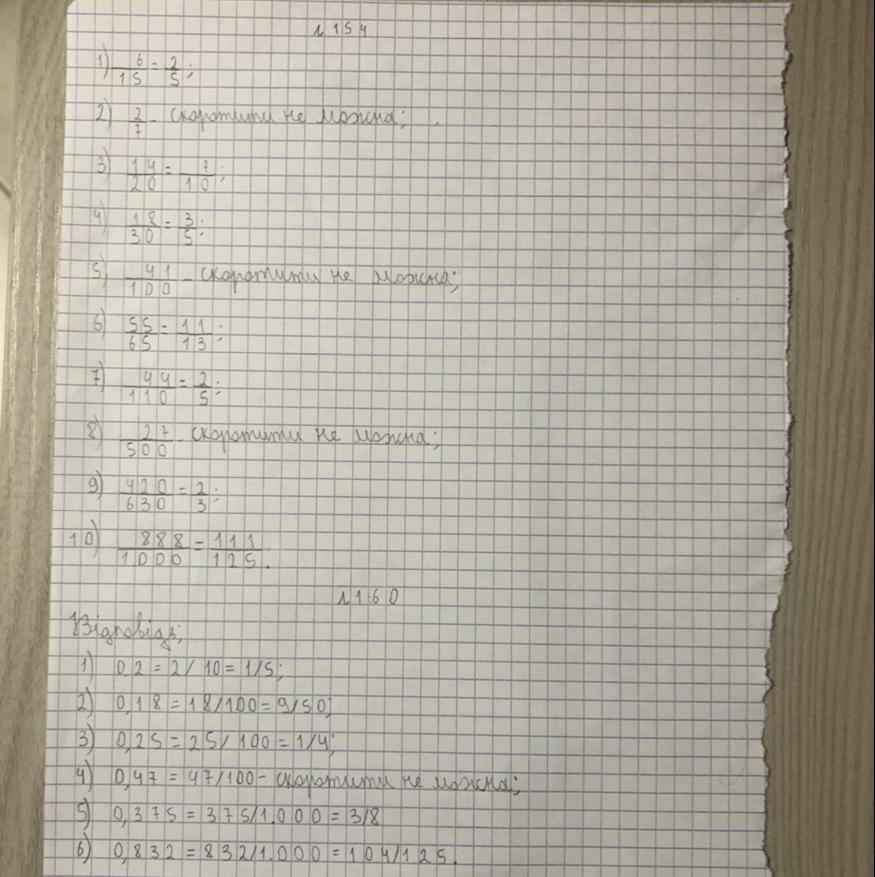 № 154
1) 6/15 = 2/5;
2) 2/7 - скоротити не можна;
3) 14/20 = 7/10;
4) 18/30 = 3/5;
5) 41/100 - скоротити не можна;
6) 55/65 = 11/13;
7) 44/110 = 2/5;
8) 27/500 - скоротити не можна;
9) 420/630 = 2/3;
10) 888/1000 = 111/125.
№ 160
Відповідь;
1) 0,2 = 2/10 = 1/5;
2) 0,18 = 18/100 = 9/50;
3) 0,25 = 25/100 = 1/4;
4) 0,47 = 47/100 - скоротити не можна;
5) 0,375 = 375/1.000 = 3/8
6) 0,832 = 832/1.000 = 104/125.